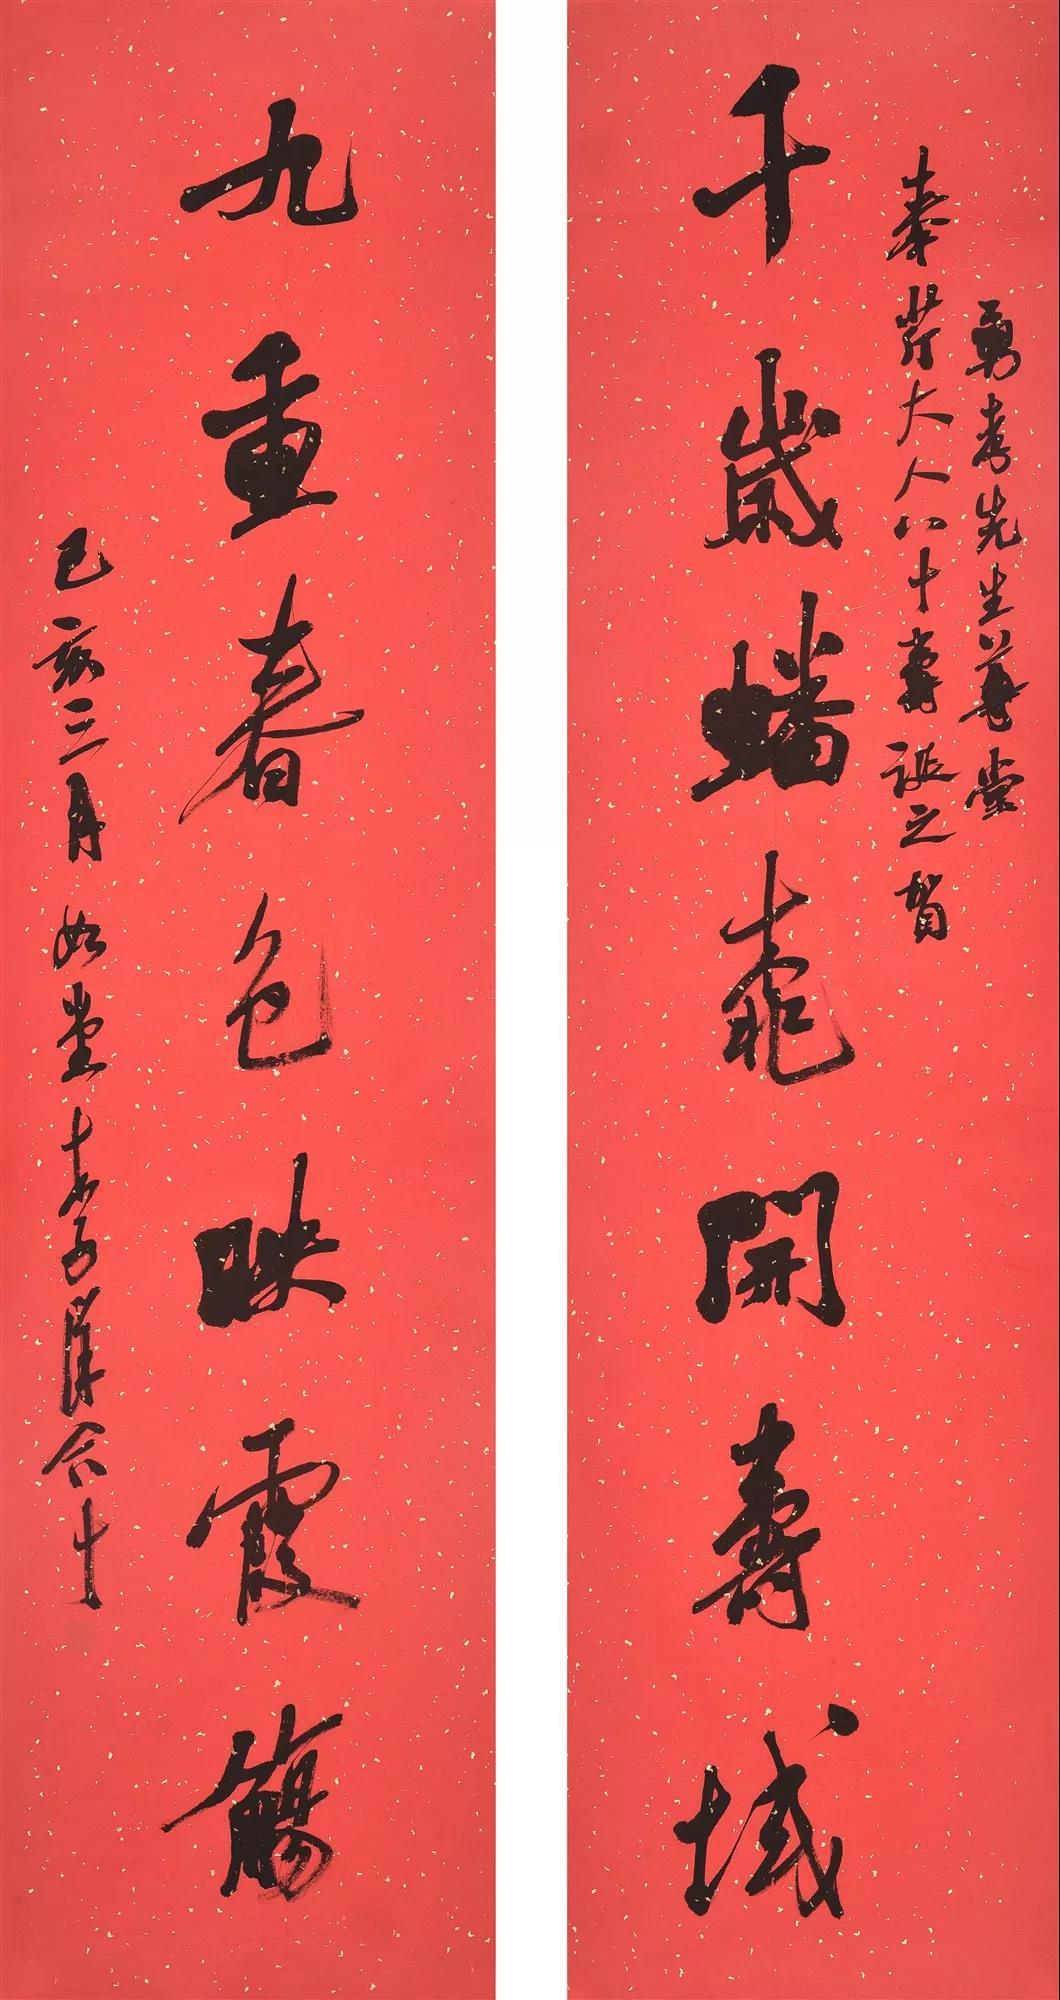 勇孝先生尊堂
芹大人八十壽誕之賀
千歲蟠桃開壽域
九重春色映霞觴
己亥三月如堂李合十